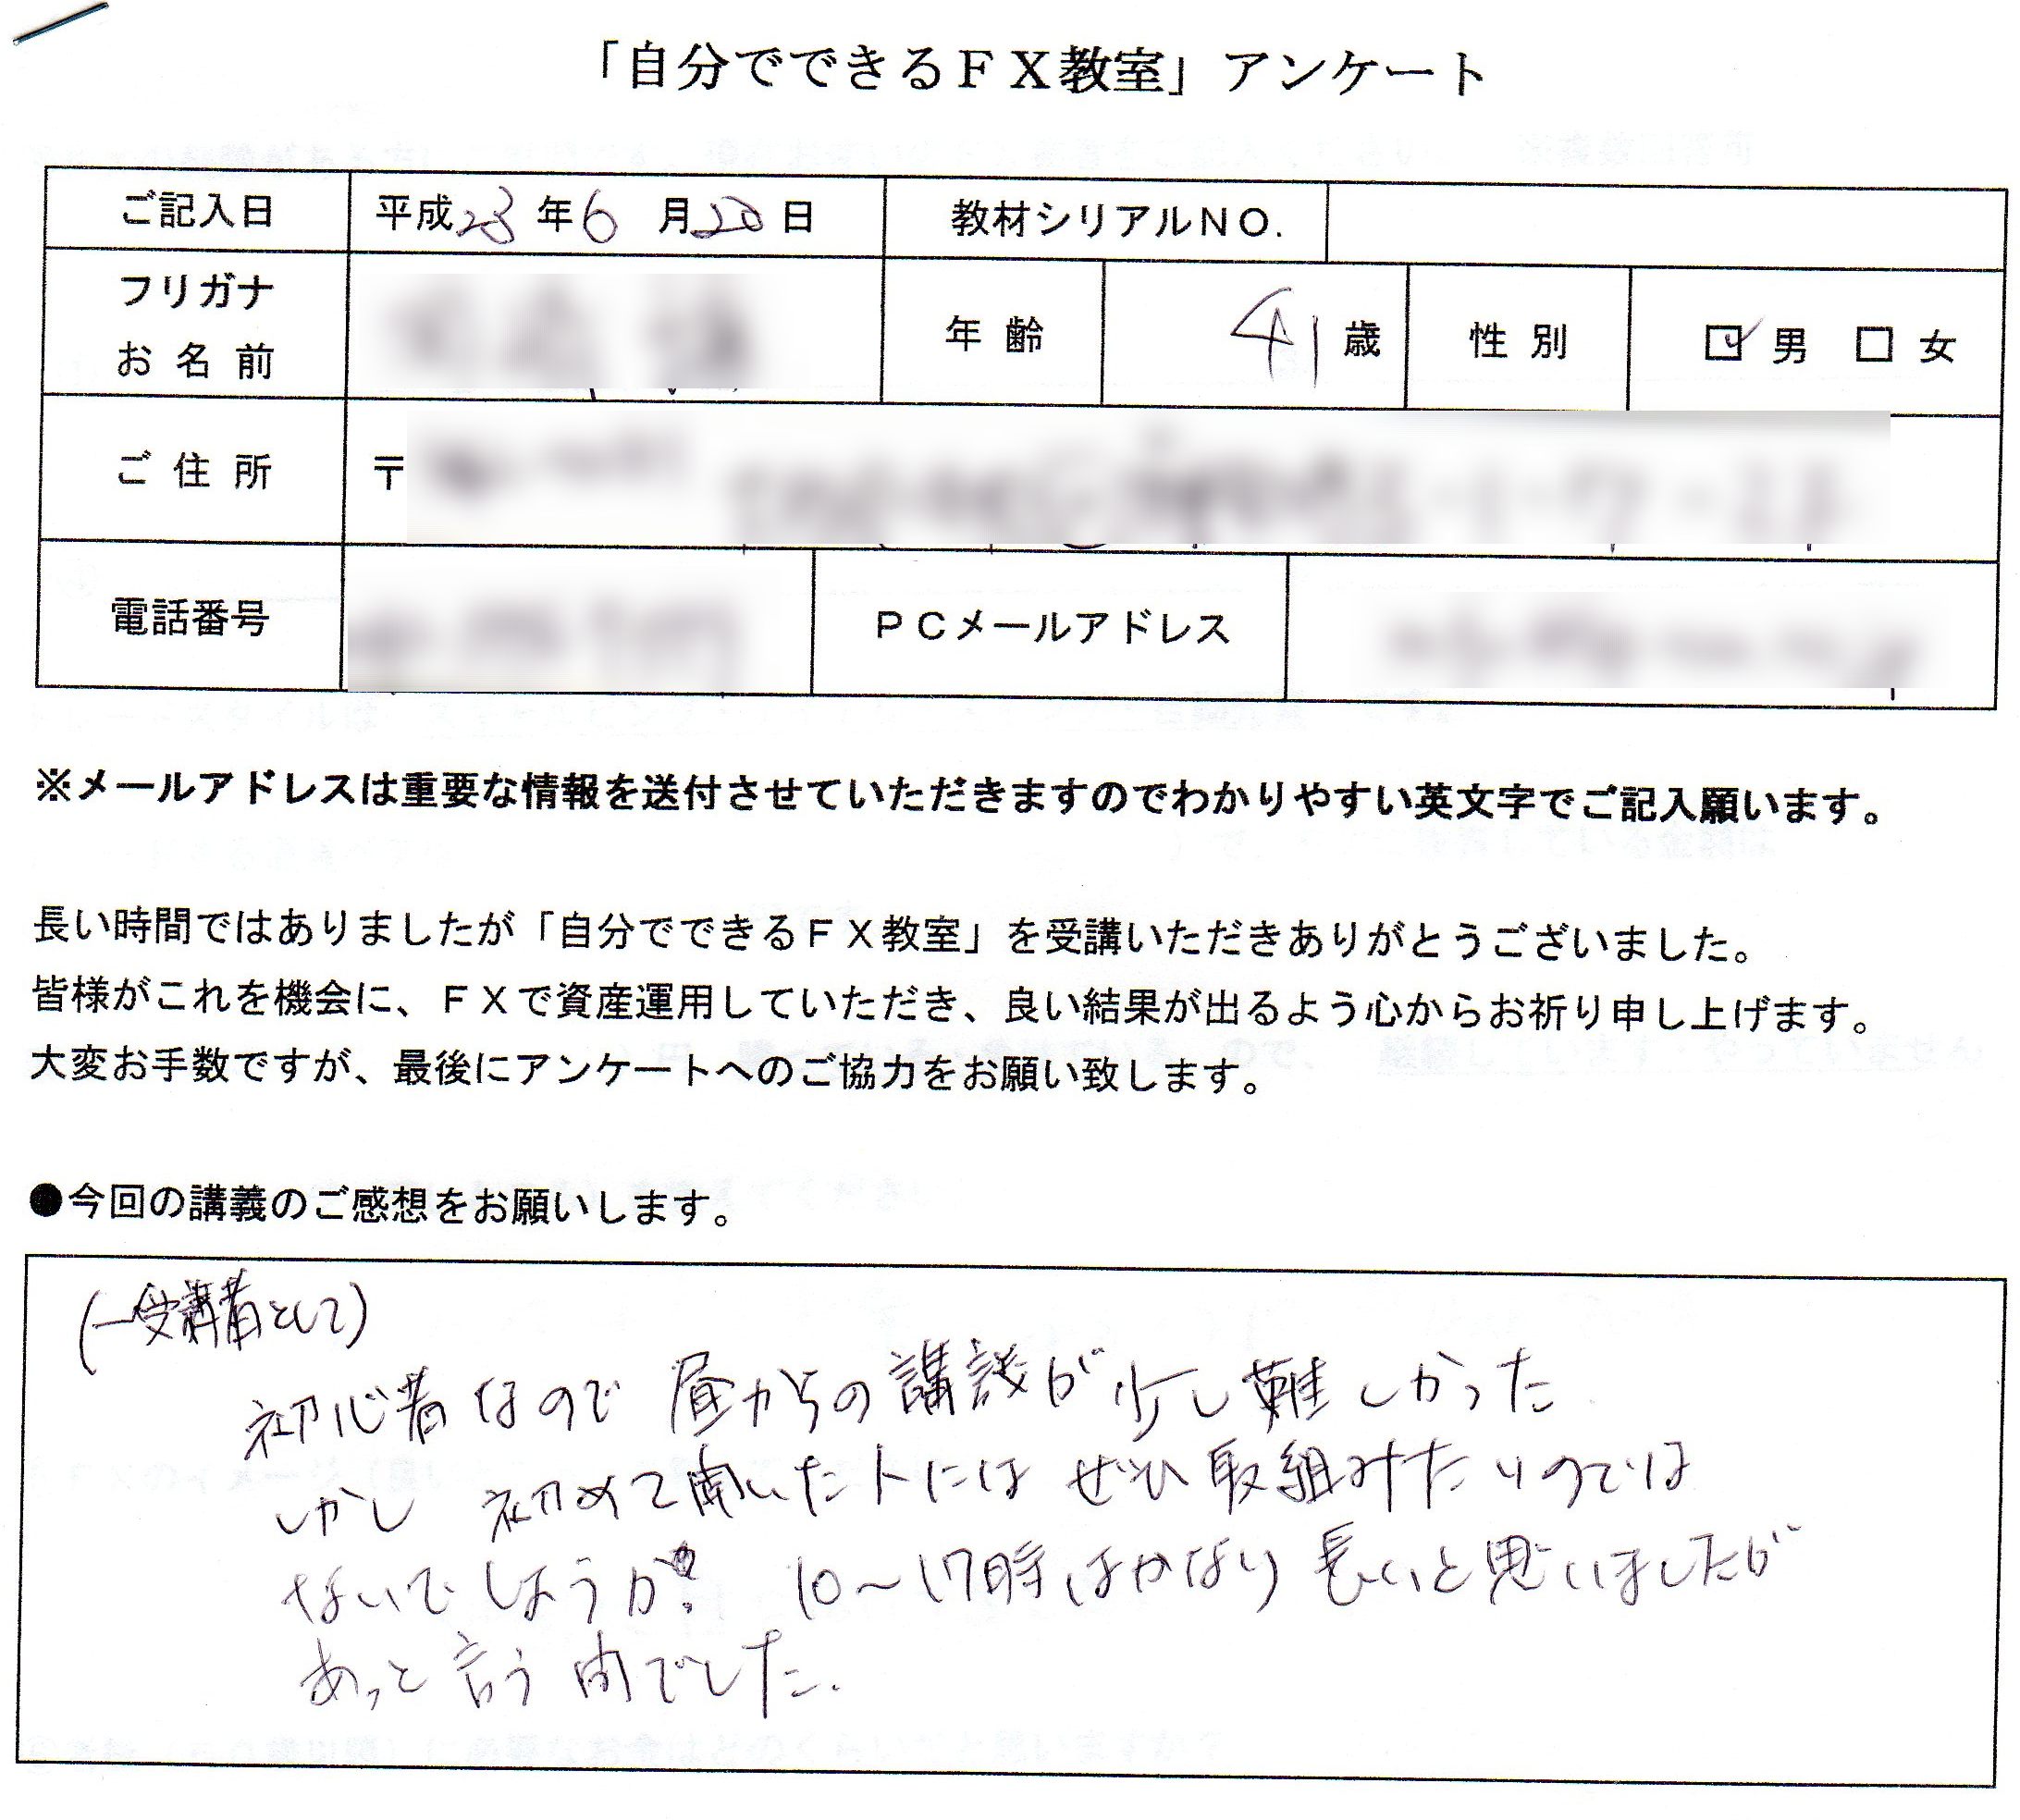 「自分でできるＦＸ教室」アンケート
ご記入日 平成23年6月20日 教材シリアルＮＯ.
フリガナ
お名前 年齢 41歳 性別 ☑男 □女
ご住所 〒
電話番号 ＰＣメールアドレス
※メールアドレスは重要な情報を送付させていただきますのでわかりやすい英文字でご記入願います。
長い時間ではありましたが「自分でできるＦＸ教室」を受講いただきありがとうございました。
皆様がこれを機会に、ＦＸで資産運用していただき、良い結果が出るよう心からお祈り申し上げます。
大変お手数ですが、最後にアンケートへのご協力をお願い致します。
●今回の講義のご感想をお願いします。
(一受講者として)
初心者なので昼からの講談が少し難しかった
しかし 初めて聞いた人にはぜひ取組みたいのでは
ないでしょうか? 10～17時はかなり長いと思いましたが
あっと言う間でした.